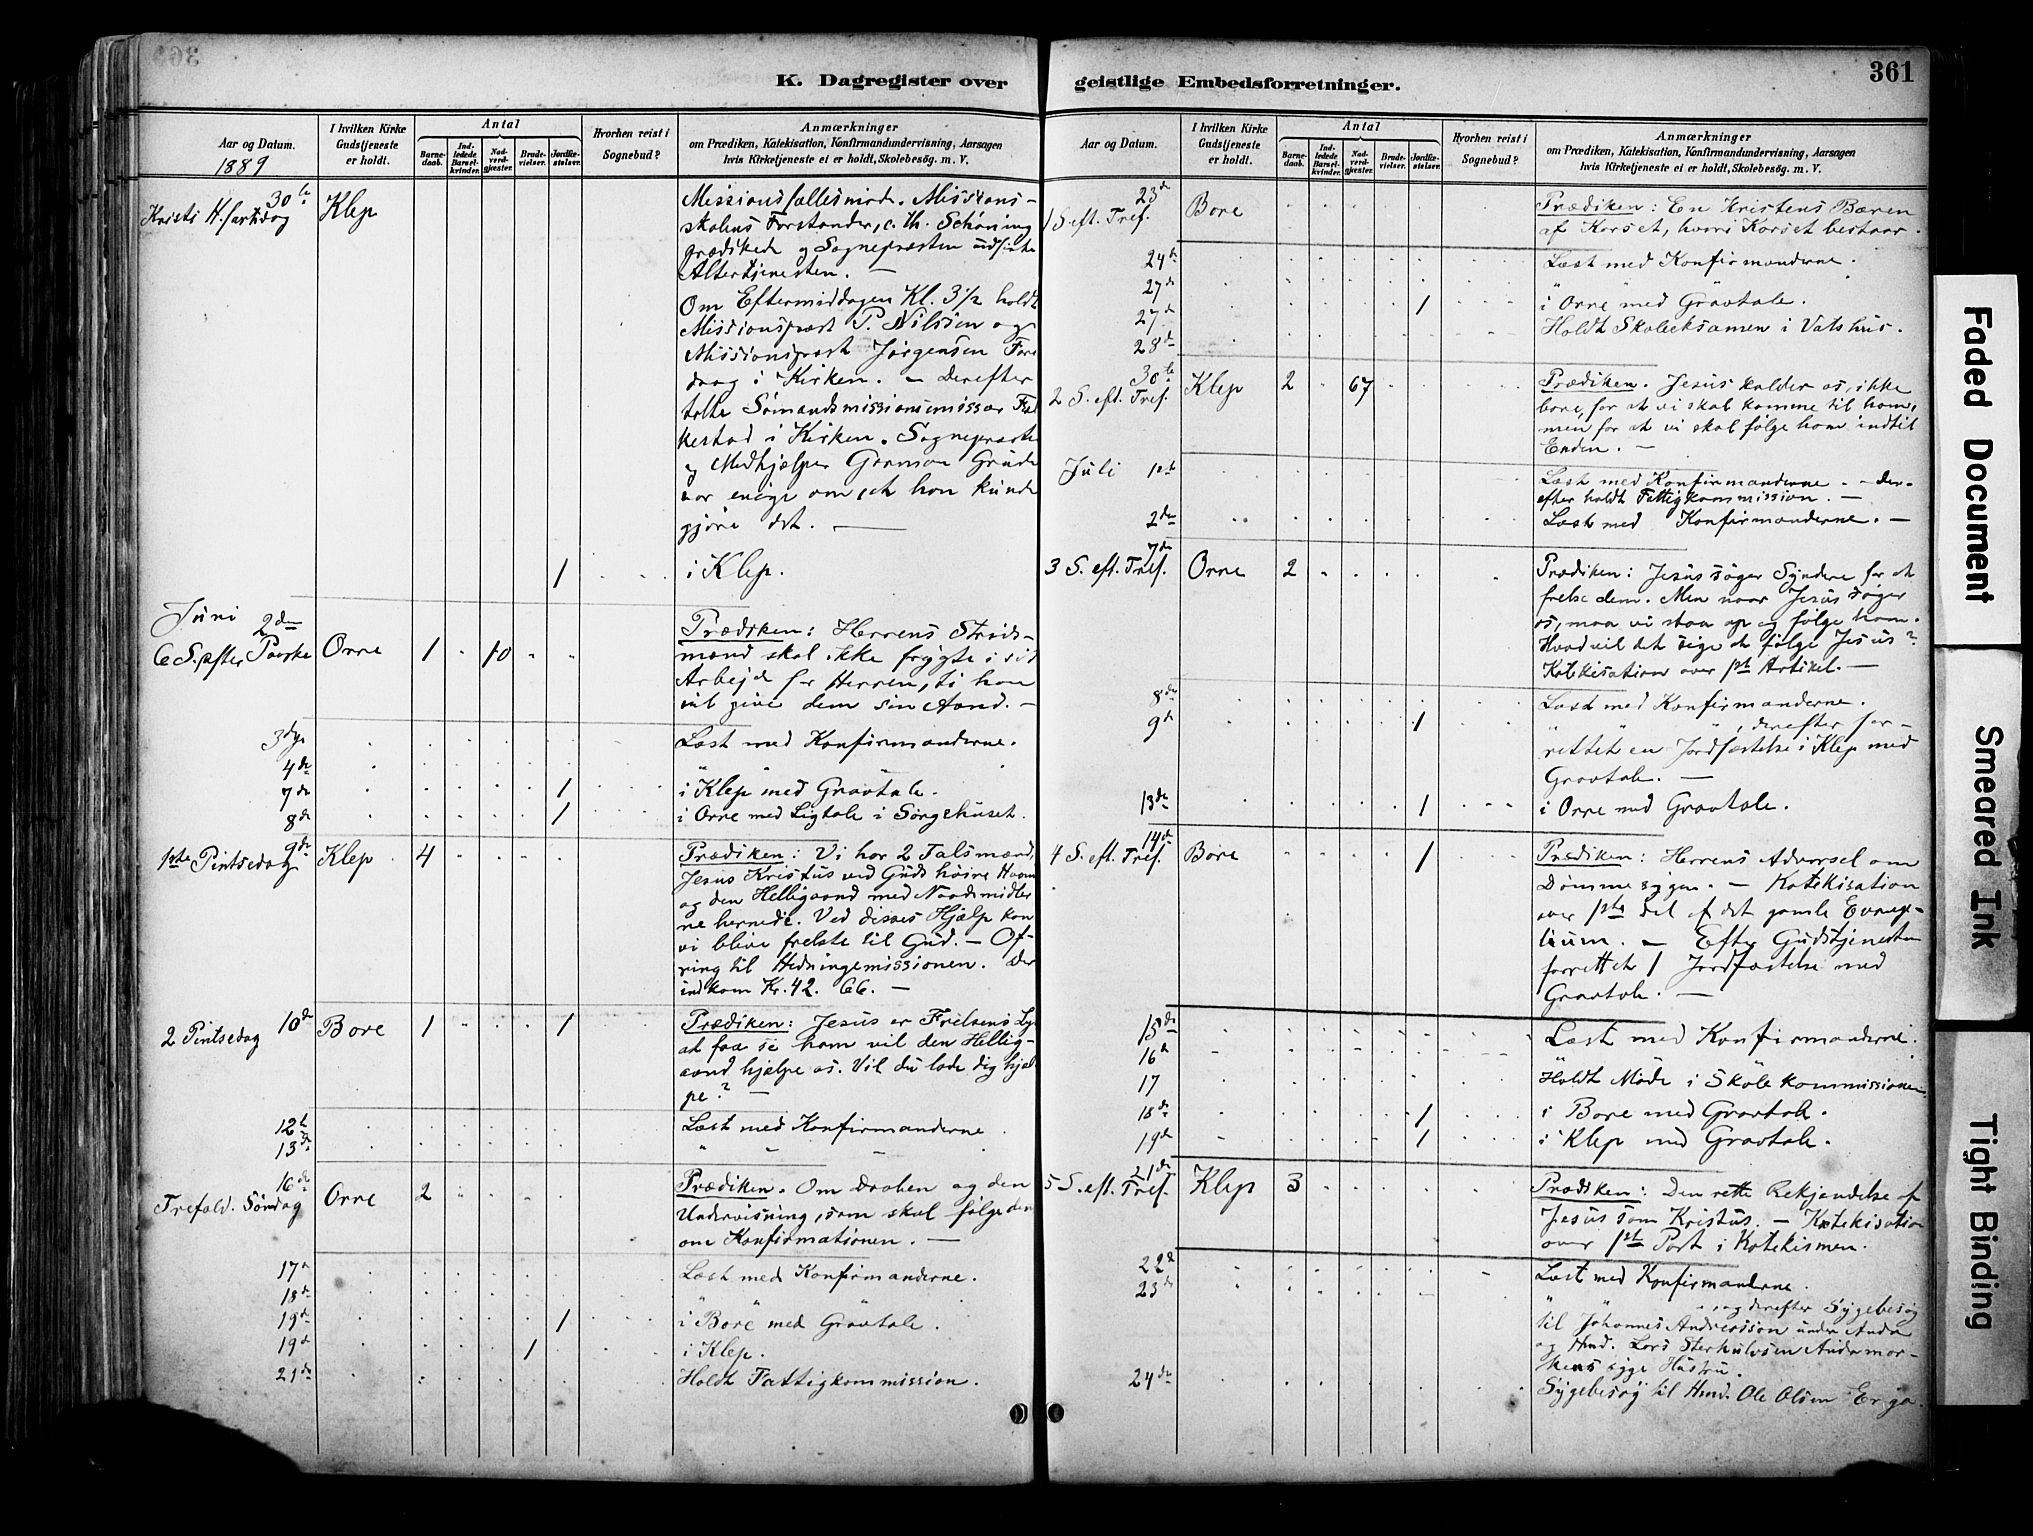 K. Dagregister over
Aar og Datum.
1889
I hvilken Kirke Gudstjeneste er holdt.
Antal
Barnedaab.
Indledede Barselkvinder.
Nadverdgjester.
Brudevielser.
Jordfæstelser.
Hvorhen reist i Sognebud?
Anmærkninger
om Prædiken, Katekisation, Konfirmandundervisning, Aarsagen
hvis Kirketjeneste ei er holdt, Skolebesøg. m. V.
30te Kristi H. fartsdag Klep Missionsfællesmøde. Missions-
skolens Forstander, c. th. Schøning
prædikede og Sognepræsten udførte
Altertjenesten. —
Om Eftermiddagen Kl. 3½ holdt
Missionsprest P. Nilssen og
Missionsprest Jørgensen Fore
drag i Kirken. — Derefter
talte Sømandsmissionsemissær
i Kirken. Sognepræste
og Medhjælper Garman Grude
var enige om, at han kunde
gjøre det. —
1 i Klep.
Juni
2den 6 S. efter Paaske Orre 1 10 Prædiken: Herrens Strids-
mænd skal ikke frygte i sit
Arbejde for Herren, ti han
vil give dem sin Aand. —
3dje Læst med Konfirmanderne.
4de " "
7de 1 i Klep med Gravtale.
8de 1 i Orre med Ligtale i Sørgehuset.
9de 1ste Pintsedag Klep 4 Prædiken: Vi har 2 Talsmænd,
Jesus Kristus ved Guds høire Haand
og den Helligaand med Naadesmidler
ne hernede. Ved disses Hjælp kan
vi blive frelste til Gud. — Of-
ring til Hedningemissionen. Der
indkom Kr. 42. 66. —
10de 2 Pintsedag Bore 1 1 Prædiken: Jesus er Frelsens Lys
at faa se ham vil den Hellig-
aand hjælpe os. Vil du lade dig hjæl
pe? —
12te Læst med Konfirmanderne
13de " " "
16de Trefold. Søndag Orre 2 Prædiken. Om Daaben og den
Undervisning, som skal følge den
om Konfirmationen. —
17de Læst med Konfirmanderne.
18de " "
19de 1 i Bore med Gravtale.
19de 1 i Klep.
21de Holdt Fattigkommission.
geistlige Embedsforretninger.
361
Aar og Datum.
I hvilken Kirke Gudstjeneste er holdt.
Antal
Barnedaab.
Indledede Barselkvinder.
Nadverdgjester.
Brudevielser.
Jordfæstelser.
Hvorhen reist i Sognebud?
Anmærkninger
om Prædiken, Katekisation, Konfirmandundervisning, Aarsagen
hvis Kirketjeneste ei er holdt, Skolebesøg. m. V.
23de 1 S eft. Tref. Bore Prædiken: En Kristens Bæren
af Korset, hvori Korset bestaar.
24de Læst med Konfirmanderne.
27de " "
27de 1 i Orre med Gravtale.
28de Holdt Skoleeksamen i Vatshus.
30te 2 S. eft. Tref. Klep 2 67 Prædiken. Jesus kalder os, ikke
bare, for at vi skal komme til ham,
men for at vi skal følge ham indtil
Enden. —
Juli 1ste Læst med Konfirmanderne. — der-
efter holdt Fattigkommission. —
2den Læst med Konfirmanderne. —
7de 3 S. eft. Tref. Orre 2 Prædiken: Jesus søger Syndere for at
frelse dem. Men naar Jesus søger
os, maa vi staa op og følge ham.
Hvad vil det sige at følge Jesus?
Katekisation over 1st Artikel. —
8de Læst med Konfirmanderne.
9de 1 " " , derefter for-
rettet en Jordfæstelse i Klep med
Gravtale. —
13de 1 i Orre med Gravtale.
14de 4 S. eft. Tref. Bore 1 Prædiken: Herrens Advarsel om
Dømmesygen. — Katekisation
over 1ste Del af det gamle Evange-
lium. — Efter Gudstjenesten
forrettet 1 Jordfæstelse med
Gravtale. —
15de Læst med Konfirmanderne.
16de " "
17 Holdt Møde i Skolekommissionen.
18de 1 i Bore med Gravtale.
19de 1 i Klep med Gravtale.
21de 5 S. eft. Tref. Klep 3 Prædiken: Den rette Bekjendelse af
Jesus som Kristus. — Katekisation
over 1st Part i Katekismen.
22de Læst med Konfirmanderne.
23de " " , og derefter Sygebesøg
til Johannes Andreassøn
og Hmd. Lars
syge Hustru.
24de Sygebesøg til Hmd. Ole Olsen Erga.
Faded Document
Smeared Ink
Tight Binding